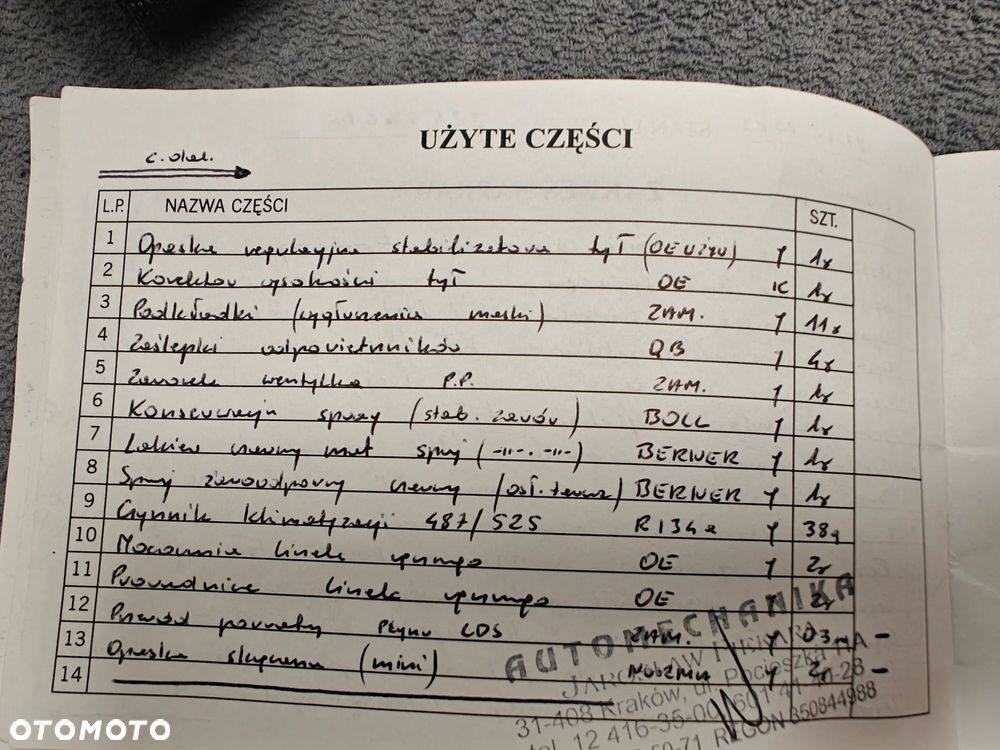 UŻYTE CZĘŚCI
c. dal.
L.P. NAZWA CZĘŚCI SZT.
1 Opaska regulacyjna stabilizatora tył (OE UŻYW) 1x
2 Korektor wysokości tył OE K 1x
3 Podkładki (wygłuszenia maski) ZAM. Y 11x
4 Zaślepki odpowietrzników QB Y 4x
5 Zaworek wentylka P.P. ZAM. Y 1x
6 Konserwacja spray (stab. zawór) BOLL Y 1x
7 Lakier czarny mat spray (-||-. -||-) BERNER Y 1x
8 Spray żaroodporny czarny BERNER Y 1x
9 Czynnik klimatyzacji 487/525 R134a Y 38g
10 Mocowania linek OE Y 2x
11 Prowadnice linek OE Y 2x
12 Przewód powrotny płynu LDS ZAM. Y 03 m -
13 Opaska skręcana (mini) Y 2x -
14
AUTOMECHANIKA
JAROSŁAW
31-408 Kraków, ul. Pocieszka
tel. 12 416-35-00
REGON 350844988
OTOMOTO